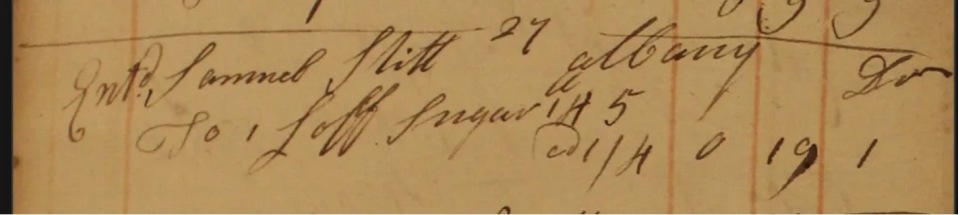 27
Entd Samuel Stitt albany Dr
To 1 Loff Sugar 14 5
@ 1/4 0 19 1